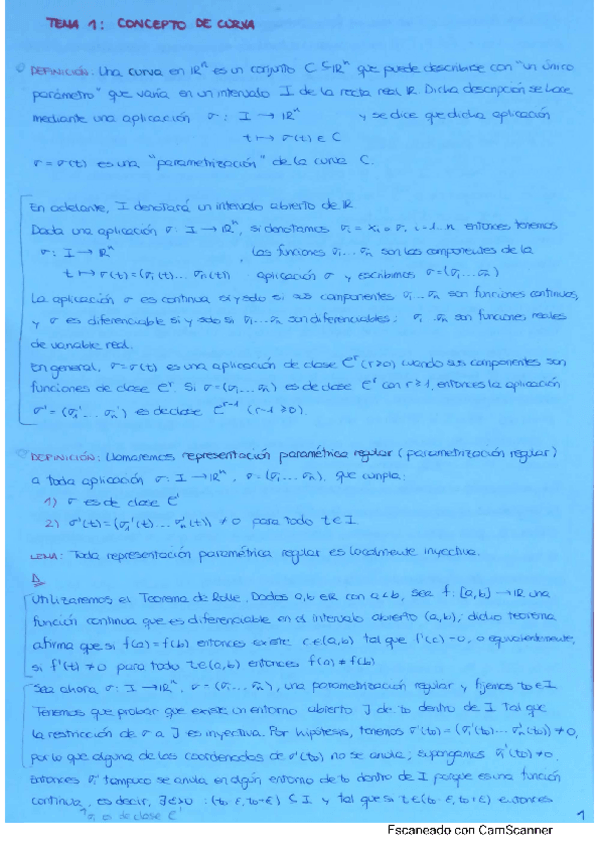 TEMA 1: CONCEPTO DE CURVA
DEFINICIÓN. Una curva en ℝⁿ es un conjunto C ⊆ ℝⁿ que puede describirse con "un único
parámetro" que varía en un intervalo I de la recta real ℝ. Dicha descripción se hace
mediante una aplicación σ: I → ℝⁿ y se dice que dicha aplicación
t ↦ σ(t) ∈ C
σ = σ(t) es una "parametrización" de la curva C.
En adelante, I denotará un intervalo abierto de ℝ
Dada una aplicación σ: I → ℝⁿ, si denotamos σᵢ = xᵢ ∘ σ, i=1...n entonces tenemos
σ: I → ℝⁿ , las funciones σ₁...σₙ son las componentes de la
t ↦ σ(t) = (σ₁(t)...σₙ(t)) aplicación σ y escribimos σ=(σ₁...σₙ)
La aplicación σ es continua si y solo si sus componentes σ₁...σₙ son funciones continuas,
y σ es diferenciable si y solo si σ₁...σₙ son diferenciables; σ₁...σₙ son funciones reales
de variable real.
En general, σ=σ(t) es una aplicación de clase Cʳ (r≥0) cuando sus componentes son
funciones de clase Cʳ. Si σ=(σ₁...σₙ) es de clase Cʳ con r≥1, entonces la aplicación
σ' = (σ₁'...σₙ') es de clase Cʳ⁻¹ (r-1≥0).
DEFINICIÓN: Llamaremos representación paramétrica regular (parametrización regular)
a toda aplicación σ: I → ℝⁿ, σ=(σ₁...σₙ), que cumpla:
1) σ es de clase C¹
2) σ'(t) = (σ₁'(t)...σₙ'(t)) ≠ 0 para todo t ∈ I
LEMA: Toda representación paramétrica regular es localmente inyectiva.
D.
Utilizaremos el Teorema de Rolle. Dados a,b ∈ ℝ con a<b, sea f: [a,b] → ℝ una
función continua que es diferenciable en el intervalo abierto (a,b); dicho teorema
afirma que si f(a)=f(b) entonces existe c∈(a,b) tal que f'(c)=0, o equivalentemente,
si f'(t) ≠ 0 para todo t∈(a,b) entonces f(a) ≠ f(b)
Sea ahora σ: I → ℝⁿ, σ=(σ₁...σₙ), una parametrización regular y fijemos t₀∈I
Tenemos que probar que existe un entorno abierto J de t₀ dentro de I tal que
la restricción de σ a J es inyectiva. Por hipótesis, tenemos σ'(t₀) = (σ₁'(t₀)...σₙ'(t₀)) ≠ 0,
por lo que alguna de las coordenadas de σ'(t₀) no se anula; supongamos σ₁'(t₀) ≠ 0.
Entonces σ₁' tampoco se anula en algún entorno de t₀ dentro de I porque es una función
continua, es decir, ∃ε>0 : (t₀-ε, t₀+ε) ⊆ I y tal que si t∈(t₀-ε, t₀+ε) entonces
σ es de clase C¹
1
Escaneado con CamScanner